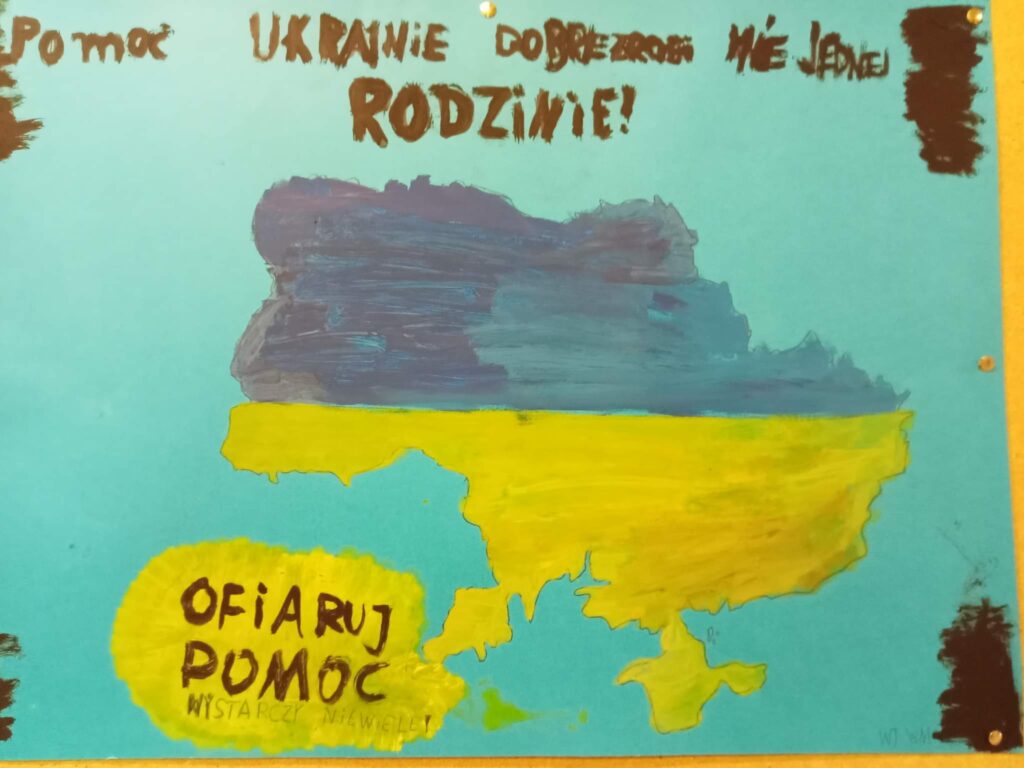 Pomoc UKRAINIE DOBRZE ZROBI NIE JEDNEJ
RODZINIE!
OFIARUJ
POMOC
WYSTARCZY NIEWIELE